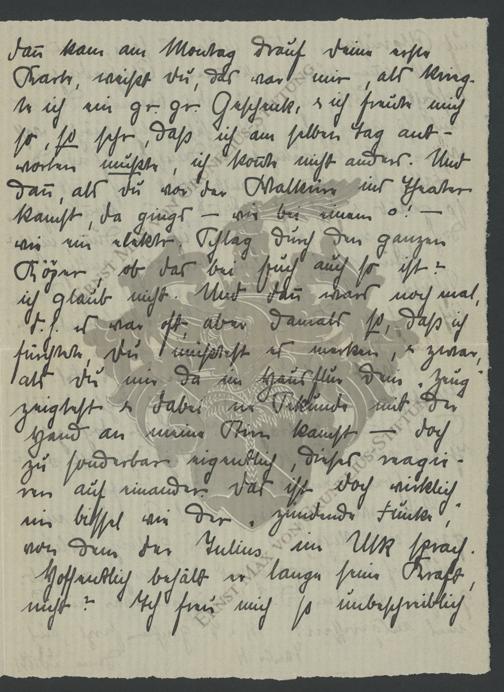 dañ kam am Montag drauf deine erste
Karte, weißt du, das war mir, als krieg-
te ich ein gr. gr. Geschenk, & ich freute mich
so, so sehr, daß ich am selben Tag ant-
worten mußte, ich koñte nicht anders. Und
dañ, als du vor der Walküre ins Theater
kamst, da gings — wie bei einem o! —
wie ein elektr. Schlag durch den ganzen
Körper, ob das bei Euch auch so ist?
ich glaub nicht. Und dañ wars noch mal,
d. h. es war oft, aber damals so, daß ich
fürchtete, du müßtest es merken, & zwar,
als du mir da im Hausflur dein "Zeug"
zeigtest & dabei ne Sekunde mit der
Hand an meine Stirn kamst — doch
zu sonderbar eigentlich, dieses reagie-
ren auf einander. Das ist doch wirklich
ein bissel wie der "zündende Funke",
von dem der Julius im UK sprach.
Hoffentlich behält er lange seine Kraft,
nicht? Ich freu mich so unbeschreiblich
ERNST MAX VON GRUNELIUS-STIFTUNG